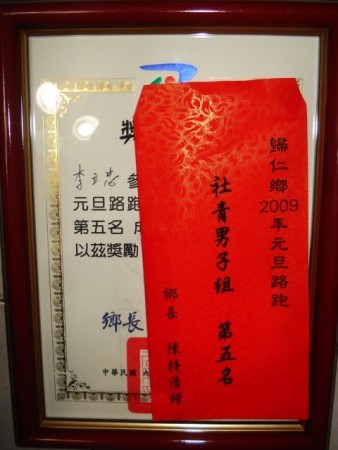 獎
李
參
元旦路跑
第五名
以茲獎勵
鄉長
中華民國
歸仁鄉2009年元旦路跑
社青男子組 第五名
鄉長 陳特清贈